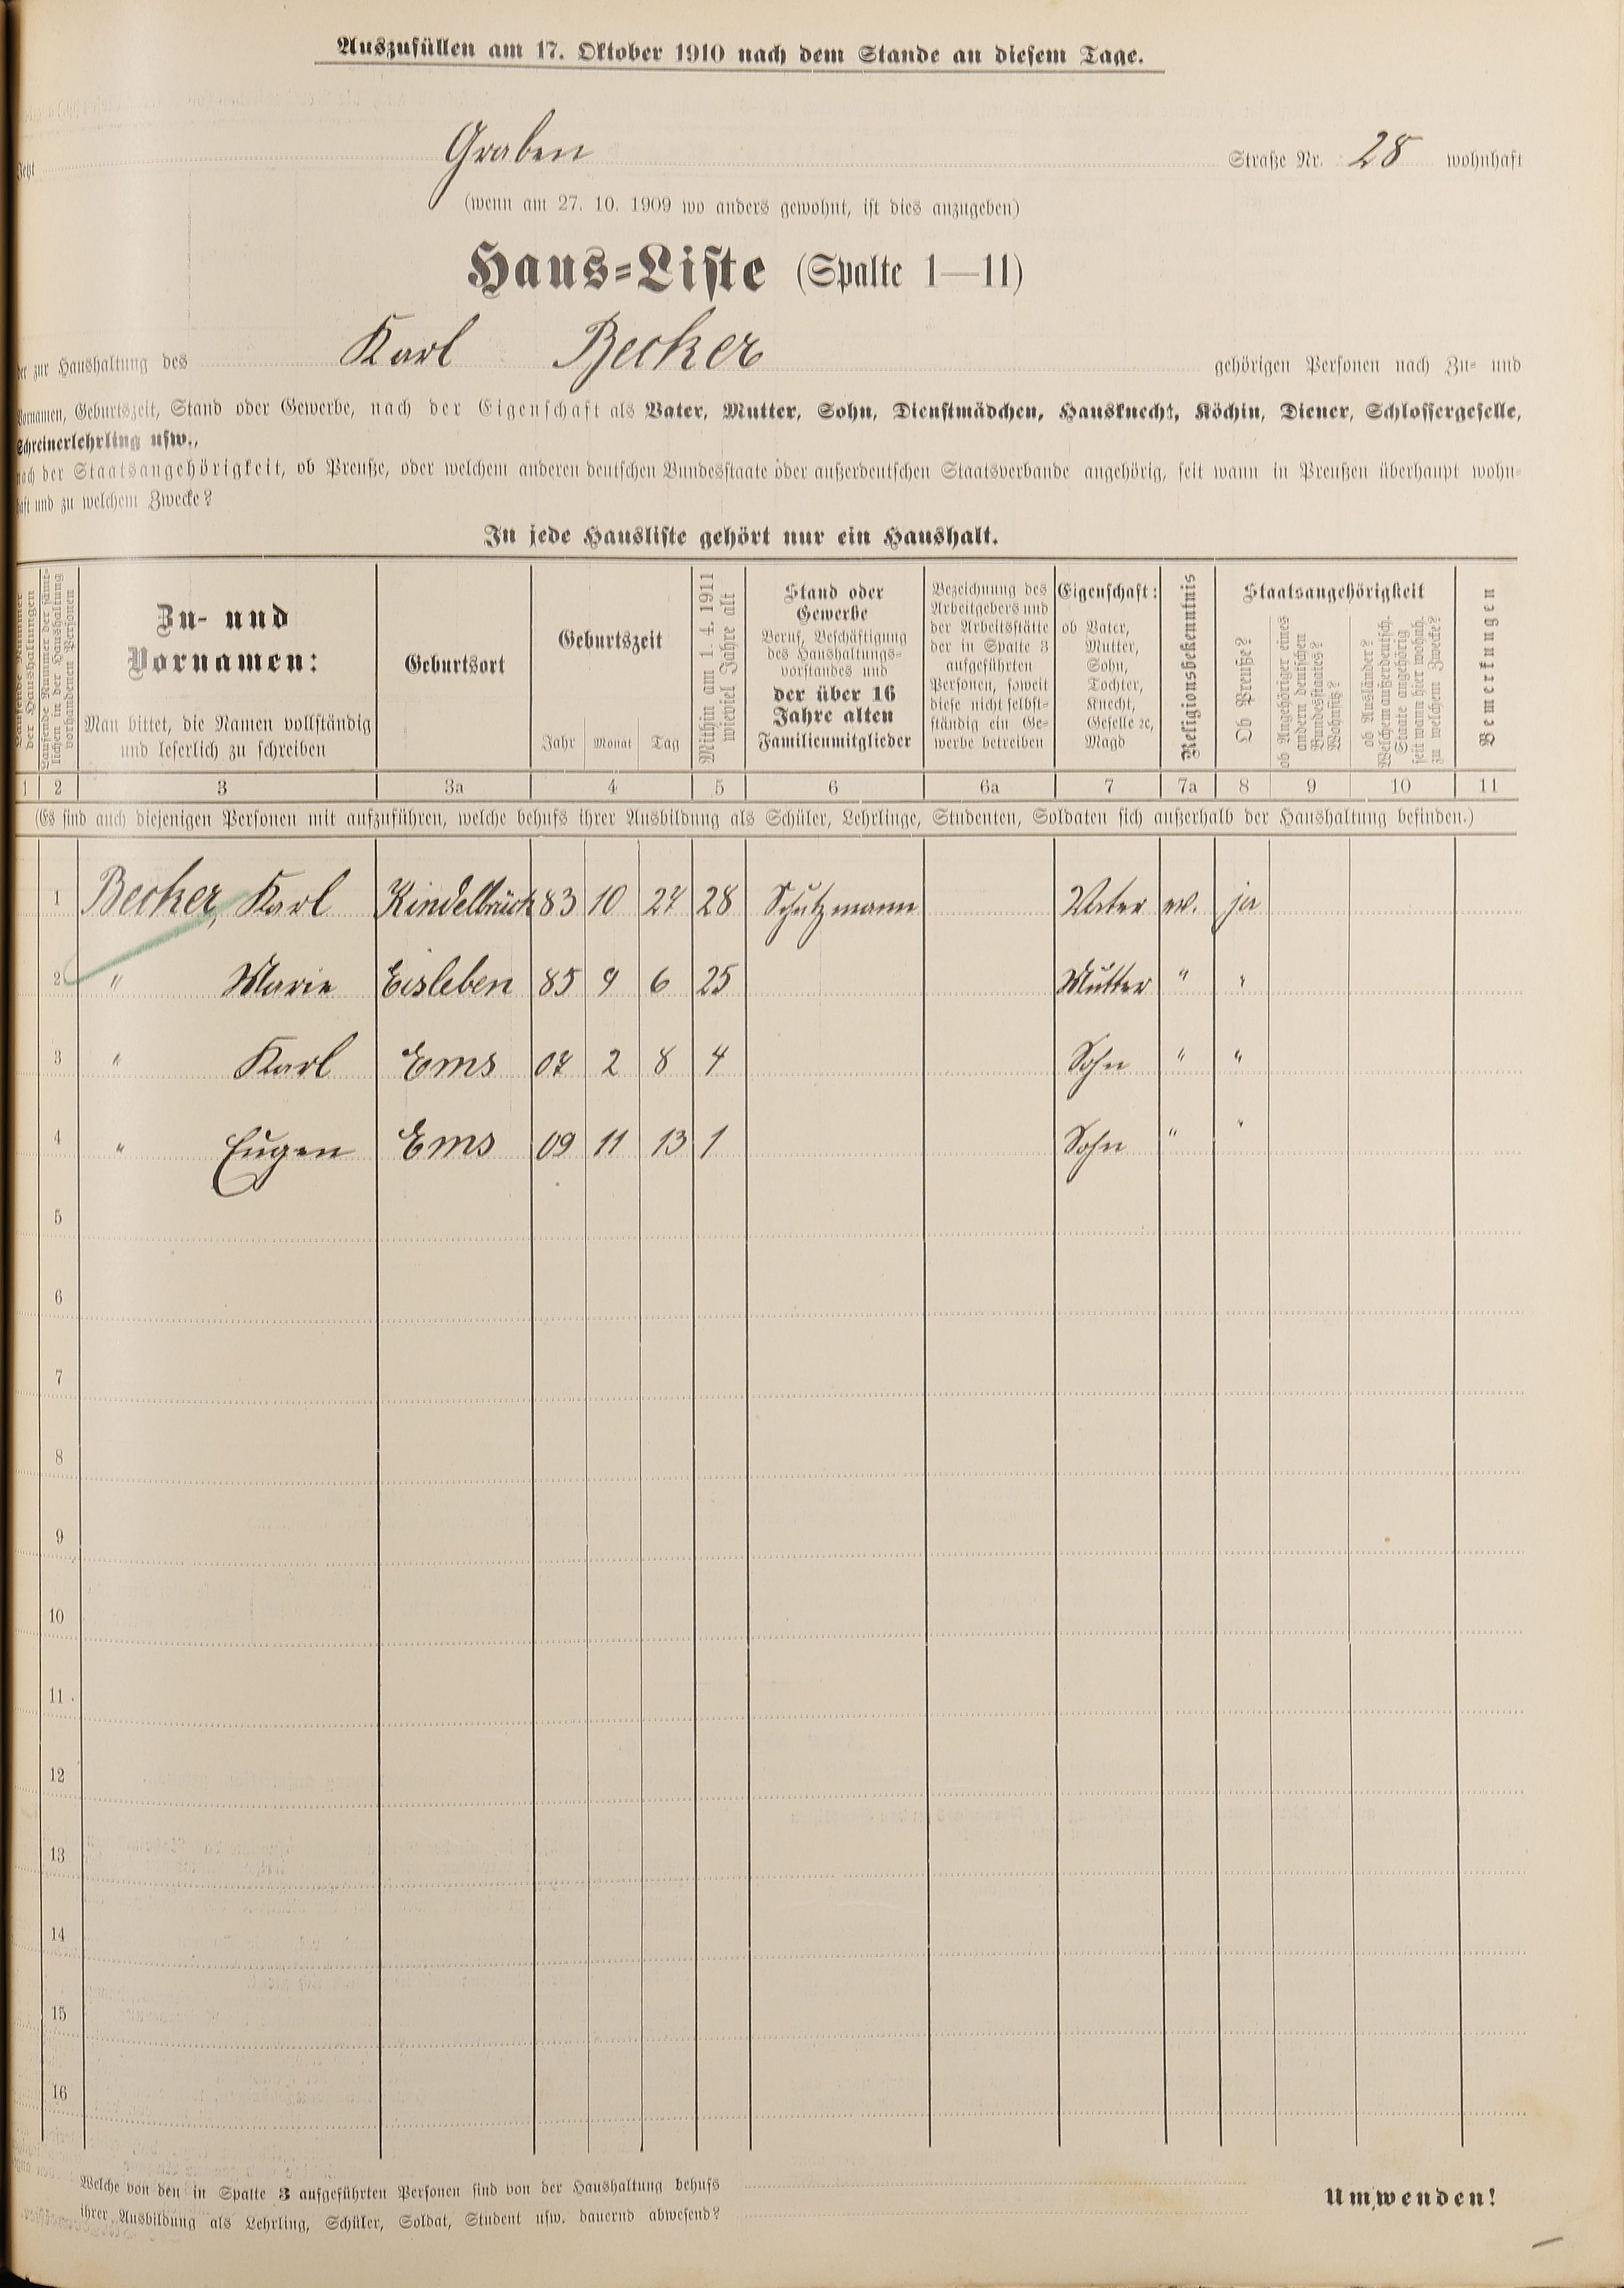 Auszufüllen am 17. Oktober 1910 nach dem Stande an diesem Tage.
Jetzt Graben Straße Nr. 28 wohnhaft
(wenn am 27. 10. 1909 wo anders gewohnt, ist dies anzugeben)
Haus-Liste (Spalte 1—11)
der zur Haushaltung des Karl Becker gehörigen Personen nach Zu- und
Vornamen, Geburtszeit, Stand oder Gewerbe, nach der Eigenschaft als Vater, Mutter, Sohn, Dienstmädchen, Hausknecht, Köchin, Diener, Schlossergeselle,
Schreinerlehrling usw.,
nach der Staatsangehörigkeit, ob Preuße, oder welchem anderen deutschen Bundesstaate oder außerdeutschen Staatsverbande angehörig, seit wann in Preußen überhaupt wohn-
haft und zu welchem Zwecke?
In jede Hausliste gehört nur ein Haushalt.
Laufende Nummer
der Haushaltungen
Laufende Nummer der sämt-
lichen in der Haushaltung
vorhandenen Personen
Zu- und
Vornamen:
Man bittet, die Namen vollständig
und leserlich zu schreiben
Geburtsort
Geburtszeit
Jahr Monat Tag
Mithin am 1. 4. 1911
wieviel Jahre alt
Stand oder
Gewerbe
Beruf, Beschäftigung
des Haushaltungs-
vorstandes und
der über 16
Jahre alten
Familienmitglieder
Bezeichnung des
Arbeitgebers und
der Arbeitsstätte
der in Spalte 3
aufgeführten
Personen, soweit
diese nicht selbst-
ständig ein Ge-
werbe betreiben
Eigenschaft:
ob Vater,
Mutter,
Sohn,
Tochter,
Knecht,
Geselle ꝛc,
Magd
Religionsbekenntnis
Staatsangehörigkeit
Ob Preuße?
ob Angehöriger eines
andern deutschen
Bundesstaates?
Wohnsitz?
ob Ausländer?
Welchem außerdeutsch.
Staate angehörig
seit wann hier wohnh.
zu welchem Zwecke?
Bemerkungen
1 2 3 3a 4 5 6 6a 7 7a 8 9 10 11
(Es sind auch diejenigen Personen mit aufzuführen, welche behufs ihrer Ausbildung als Schüler, Lehrlinge, Studenten, Soldaten sich außerhalb der Haushaltung befinden.)
1 Becker, Karl Kindelbrück 83 10 27 28 Schutzmann Vater ev. ja
2 " Marie Eisleben 85 9 6 25 Mutter " "
3 " Karl Ems 07 2 8 4 Sohn " "
4 " Eugen Ems 09 11 13 1 Sohn " "
5
6
7
8
9
10
11
12
13
14
15
16
Welche von den in Spalte 3 aufgeführten Personen sind von der Haushaltung behufs
ihrer Ausbildung als Lehrling, Schüler, Soldat, Student usw. dauernd abwesend?
Umwenden!